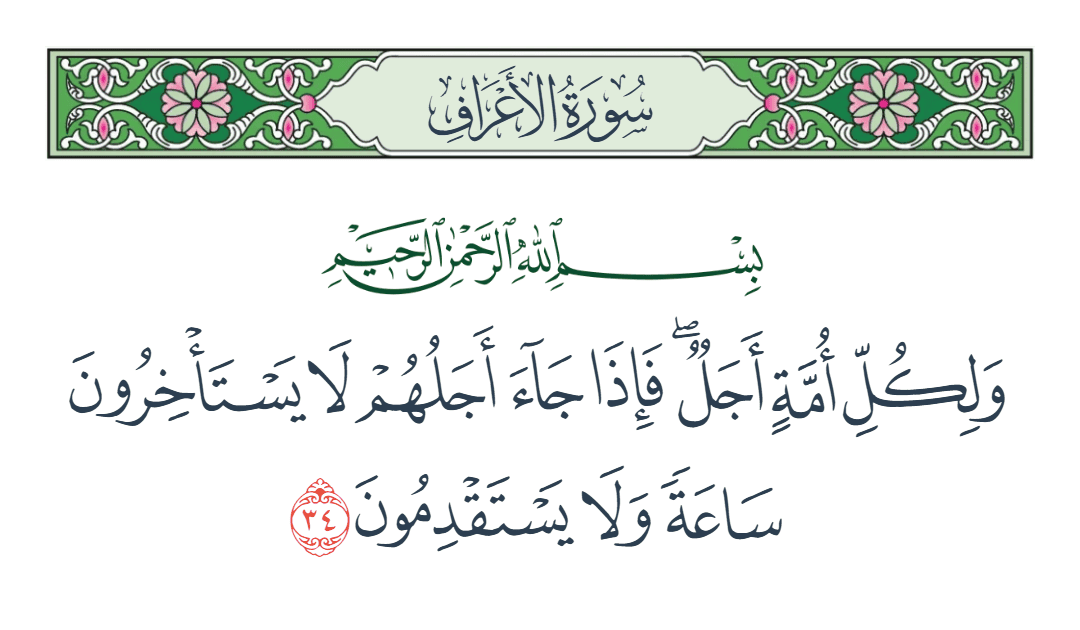 سُورَةُ الْأَعْرَافِ
بِسْمِ ٱللَّهِ ٱلرَّحْمَٰنِ ٱلرَّحِيمِ
وَلِكُلِّ أُمَّةٍ أَجَلٌۭ ۖ فَإِذَا جَآءَ أَجَلُهُمْ لَا يَسْتَأْخِرُونَ
سَاعَةًۭ وَلَا يَسْتَقْدِمُونَ ٣٤